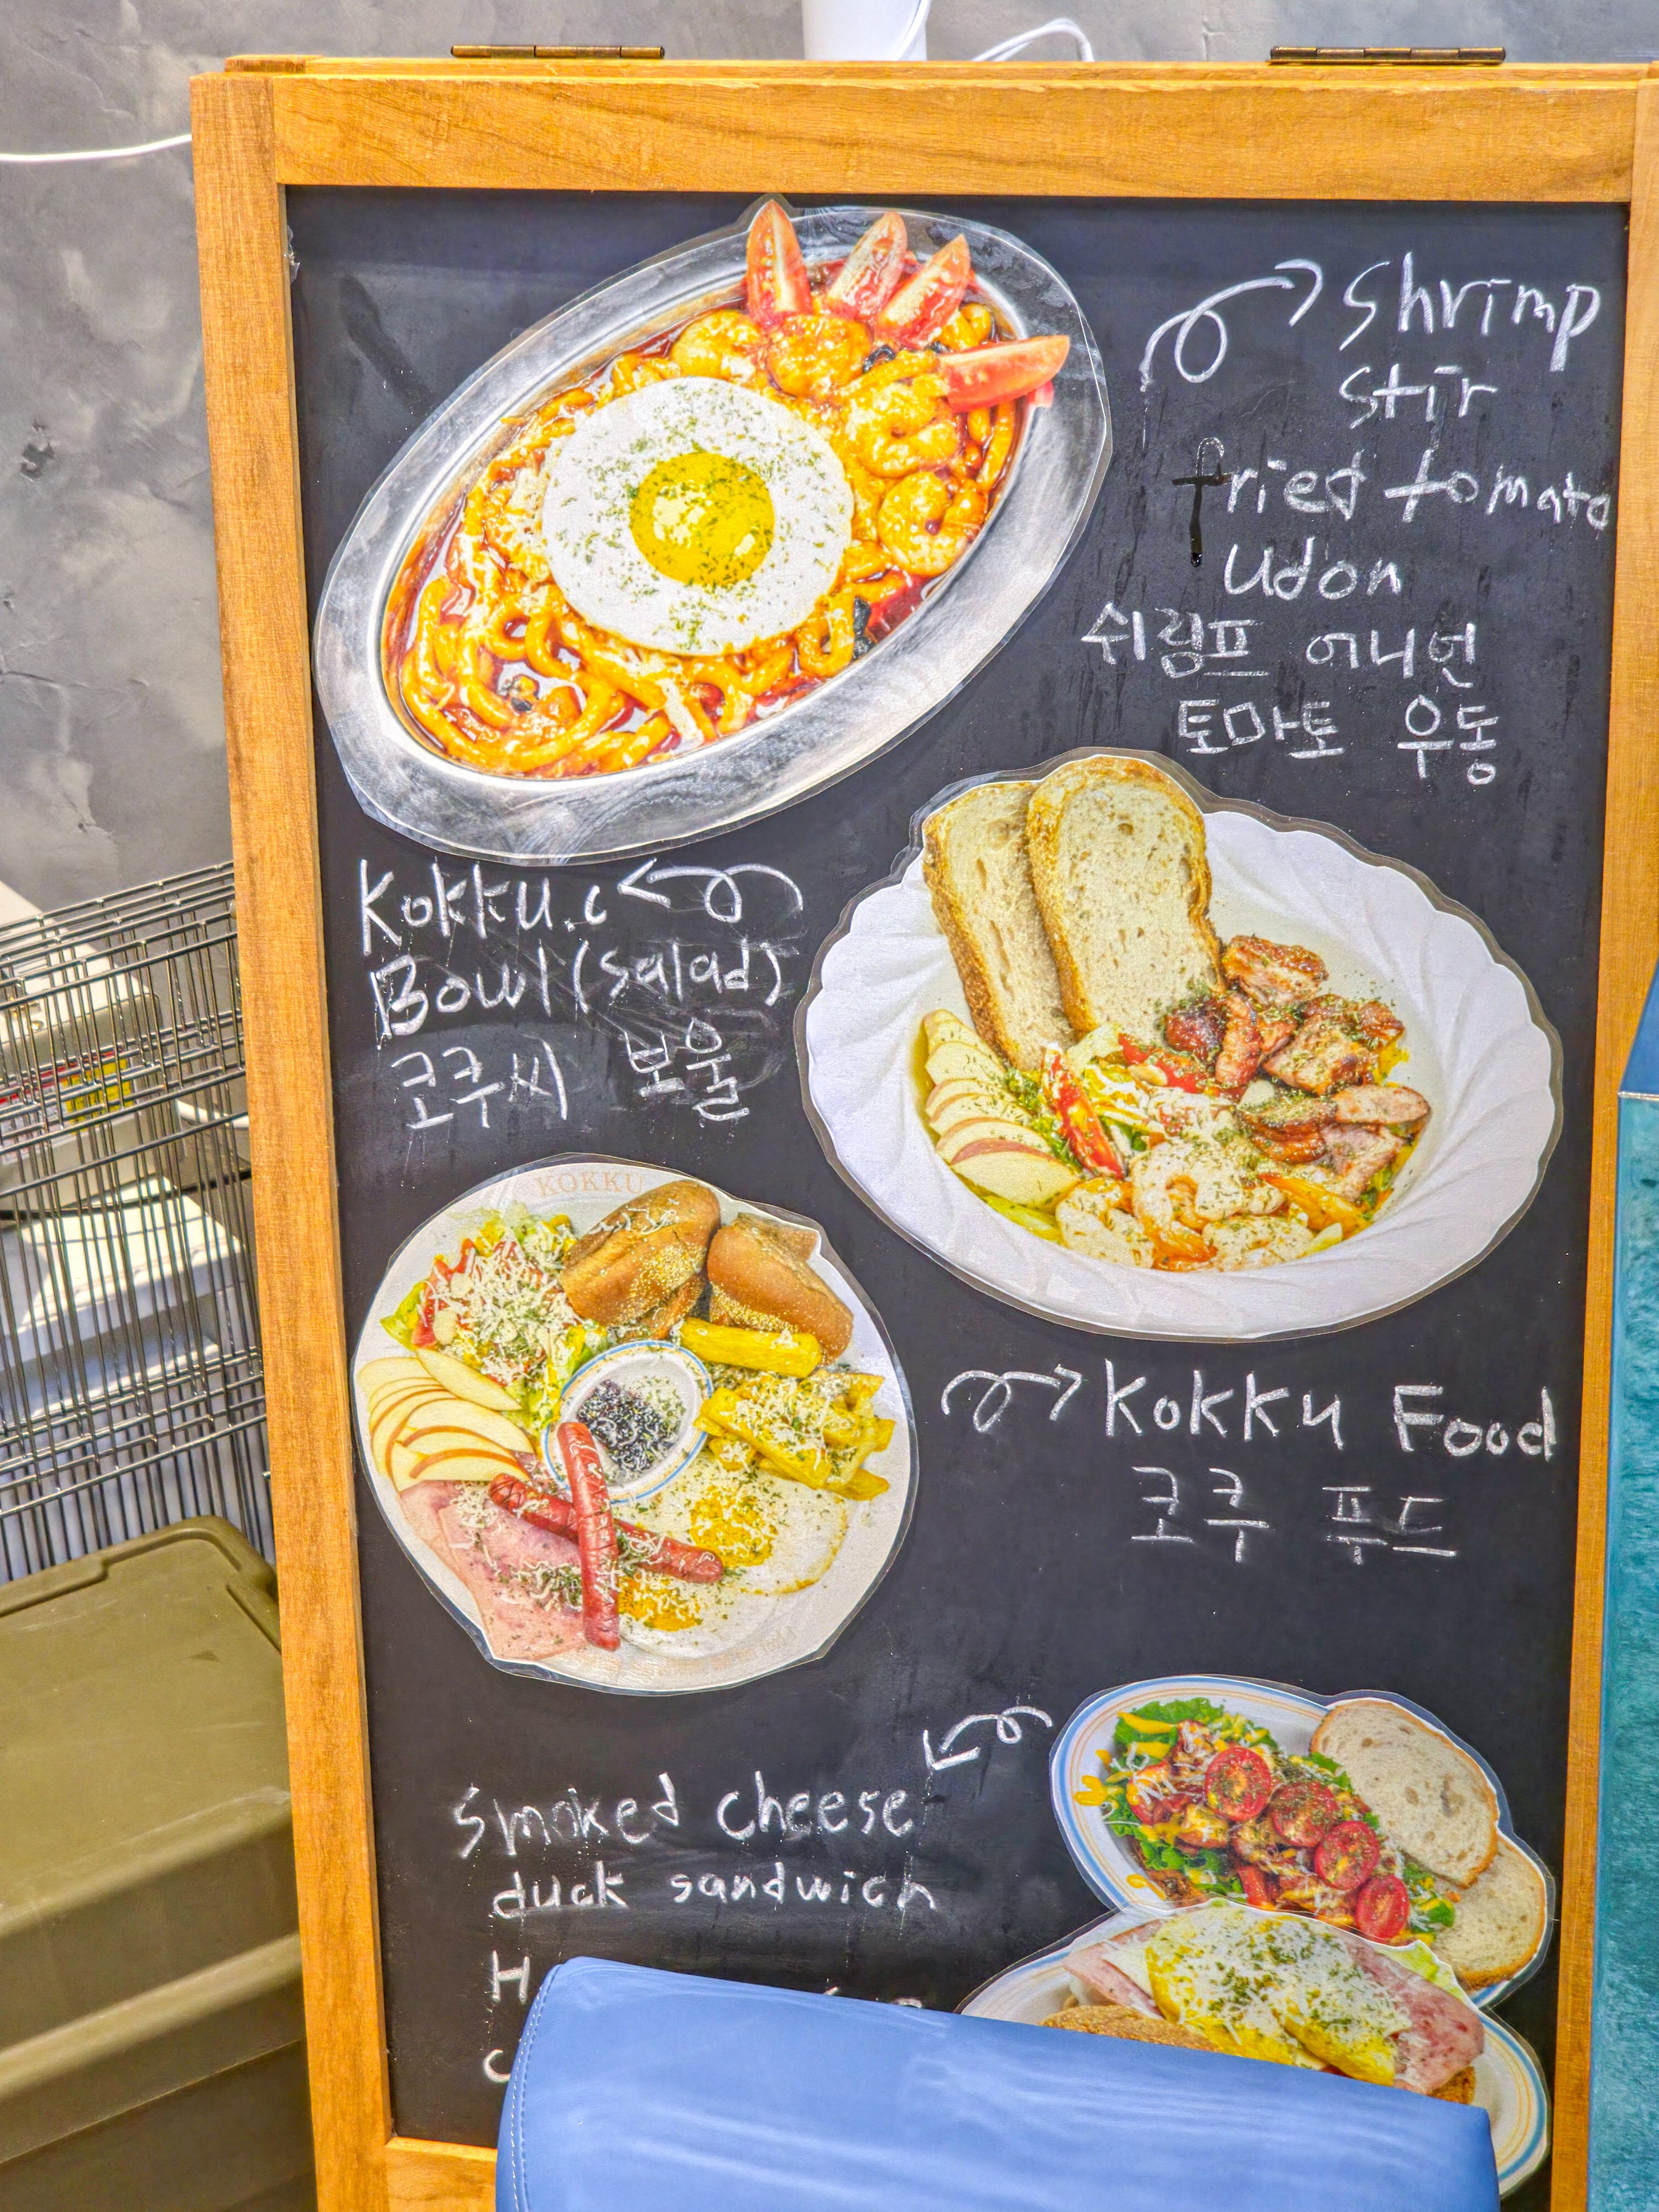 Shrimp
Stir
fried tomato
Udon
쉬림프 어니언
토마토 우동
Kokku.c
Bowl(salad)
코쿠씨 보울
KOKKU
Kokku Food
코쿠 푸드
Smoked cheese
duck sandwich